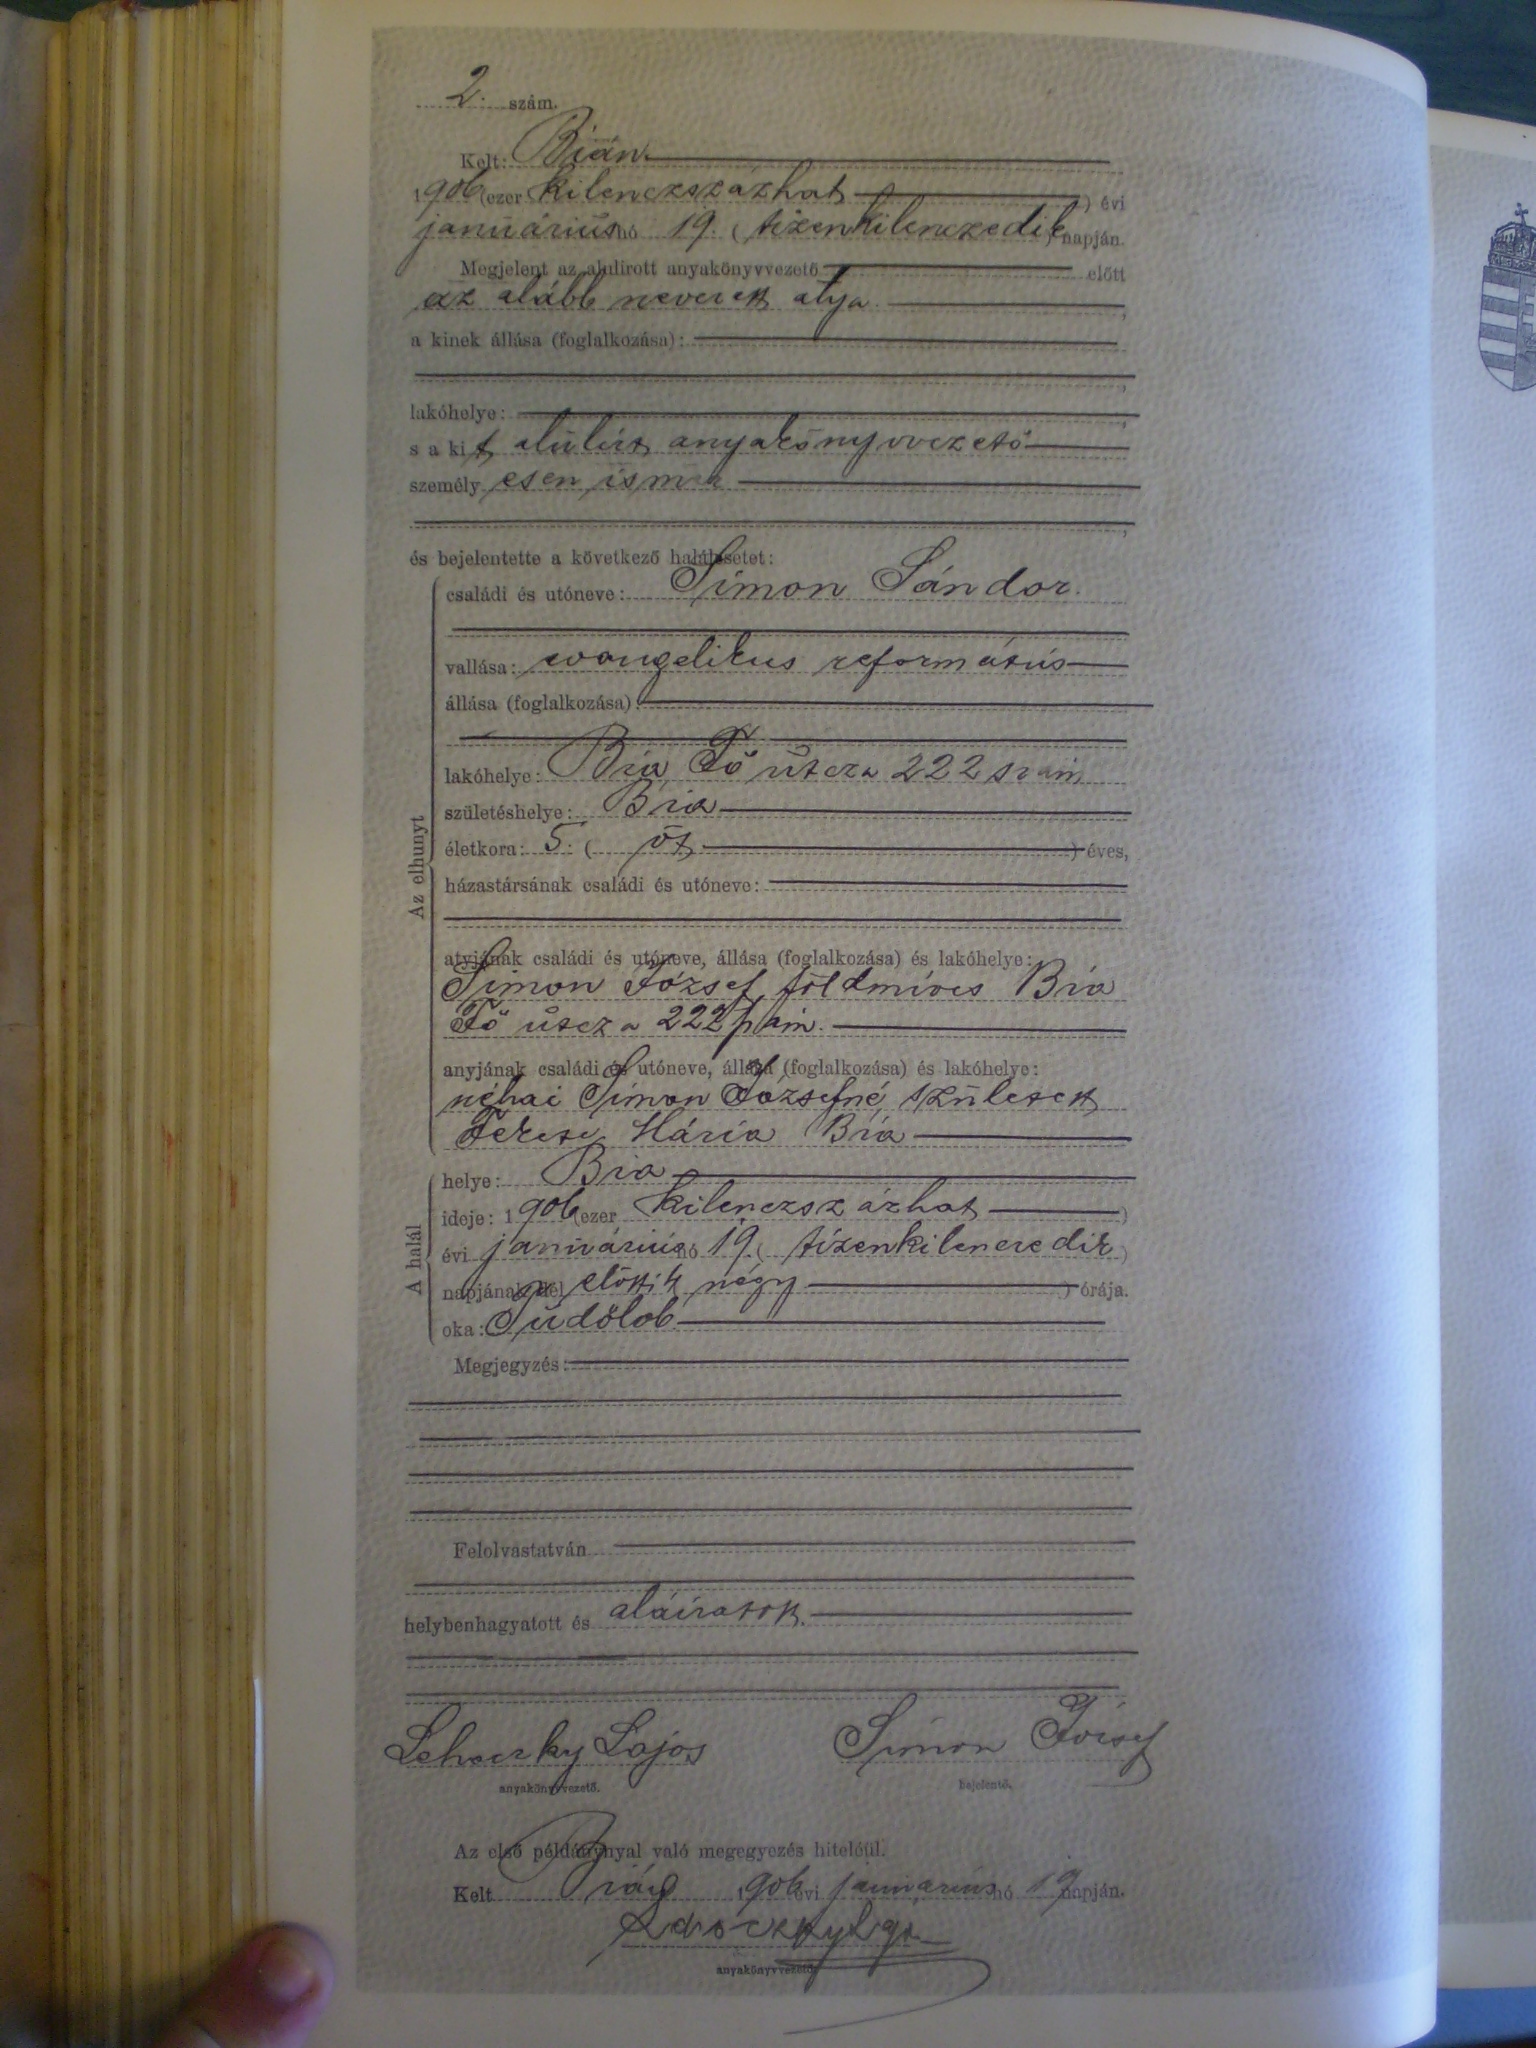 2. szám.
Kelt: Bián
1906 (ezer kilenczszázhat ) évi
januárius hó 19. ( tizenkilenczedik ) napján.
Megjelent az alulirott anyakönyvvezető előtt
az alább nevezett atyja ,
a kinek állása (foglalkozása):
,
lakóhelye: ,
s a kit alulirt anyakönyvvezető
személyesen ismer
,
és bejelentette a következő halálesetet:
Az elhunyt
családi és utóneve: Simon Sándor.
vallása: evangelikus református
állása (foglalkozása):
lakóhelye: Bia Fő útcza 222 szám
születéshelye: Bia
életkora: 5. ( öt ) éves,
házastársának családi és utóneve:
atyjának családi és utóneve, állása (foglalkozása) és lakóhelye:
Simon József földmíves Bia
Fő útcza 222 szám.
anyjának családi és utóneve, állása (foglalkozása) és lakóhelye:
néhai Simon Józsefné, született
Mária Bia
A halál
helye: Bia
ideje: 1906 (ezer kilenczszázhat )
évi januárius hó 19. ( tizenkilenczedik )
napjának dél előtti 4 négy ) órája.
oka: Tüdőlob
Megjegyzés:
Felolvastatván
helybenhagyatott és aláíratott.
Lajos Simon József
anyakönyvvezető. bejelentő.
Az első példánynyal való megegyezés hiteléül.
Kelt 1906 évi januárius hó 19 napján.
anyakönyvvezető.